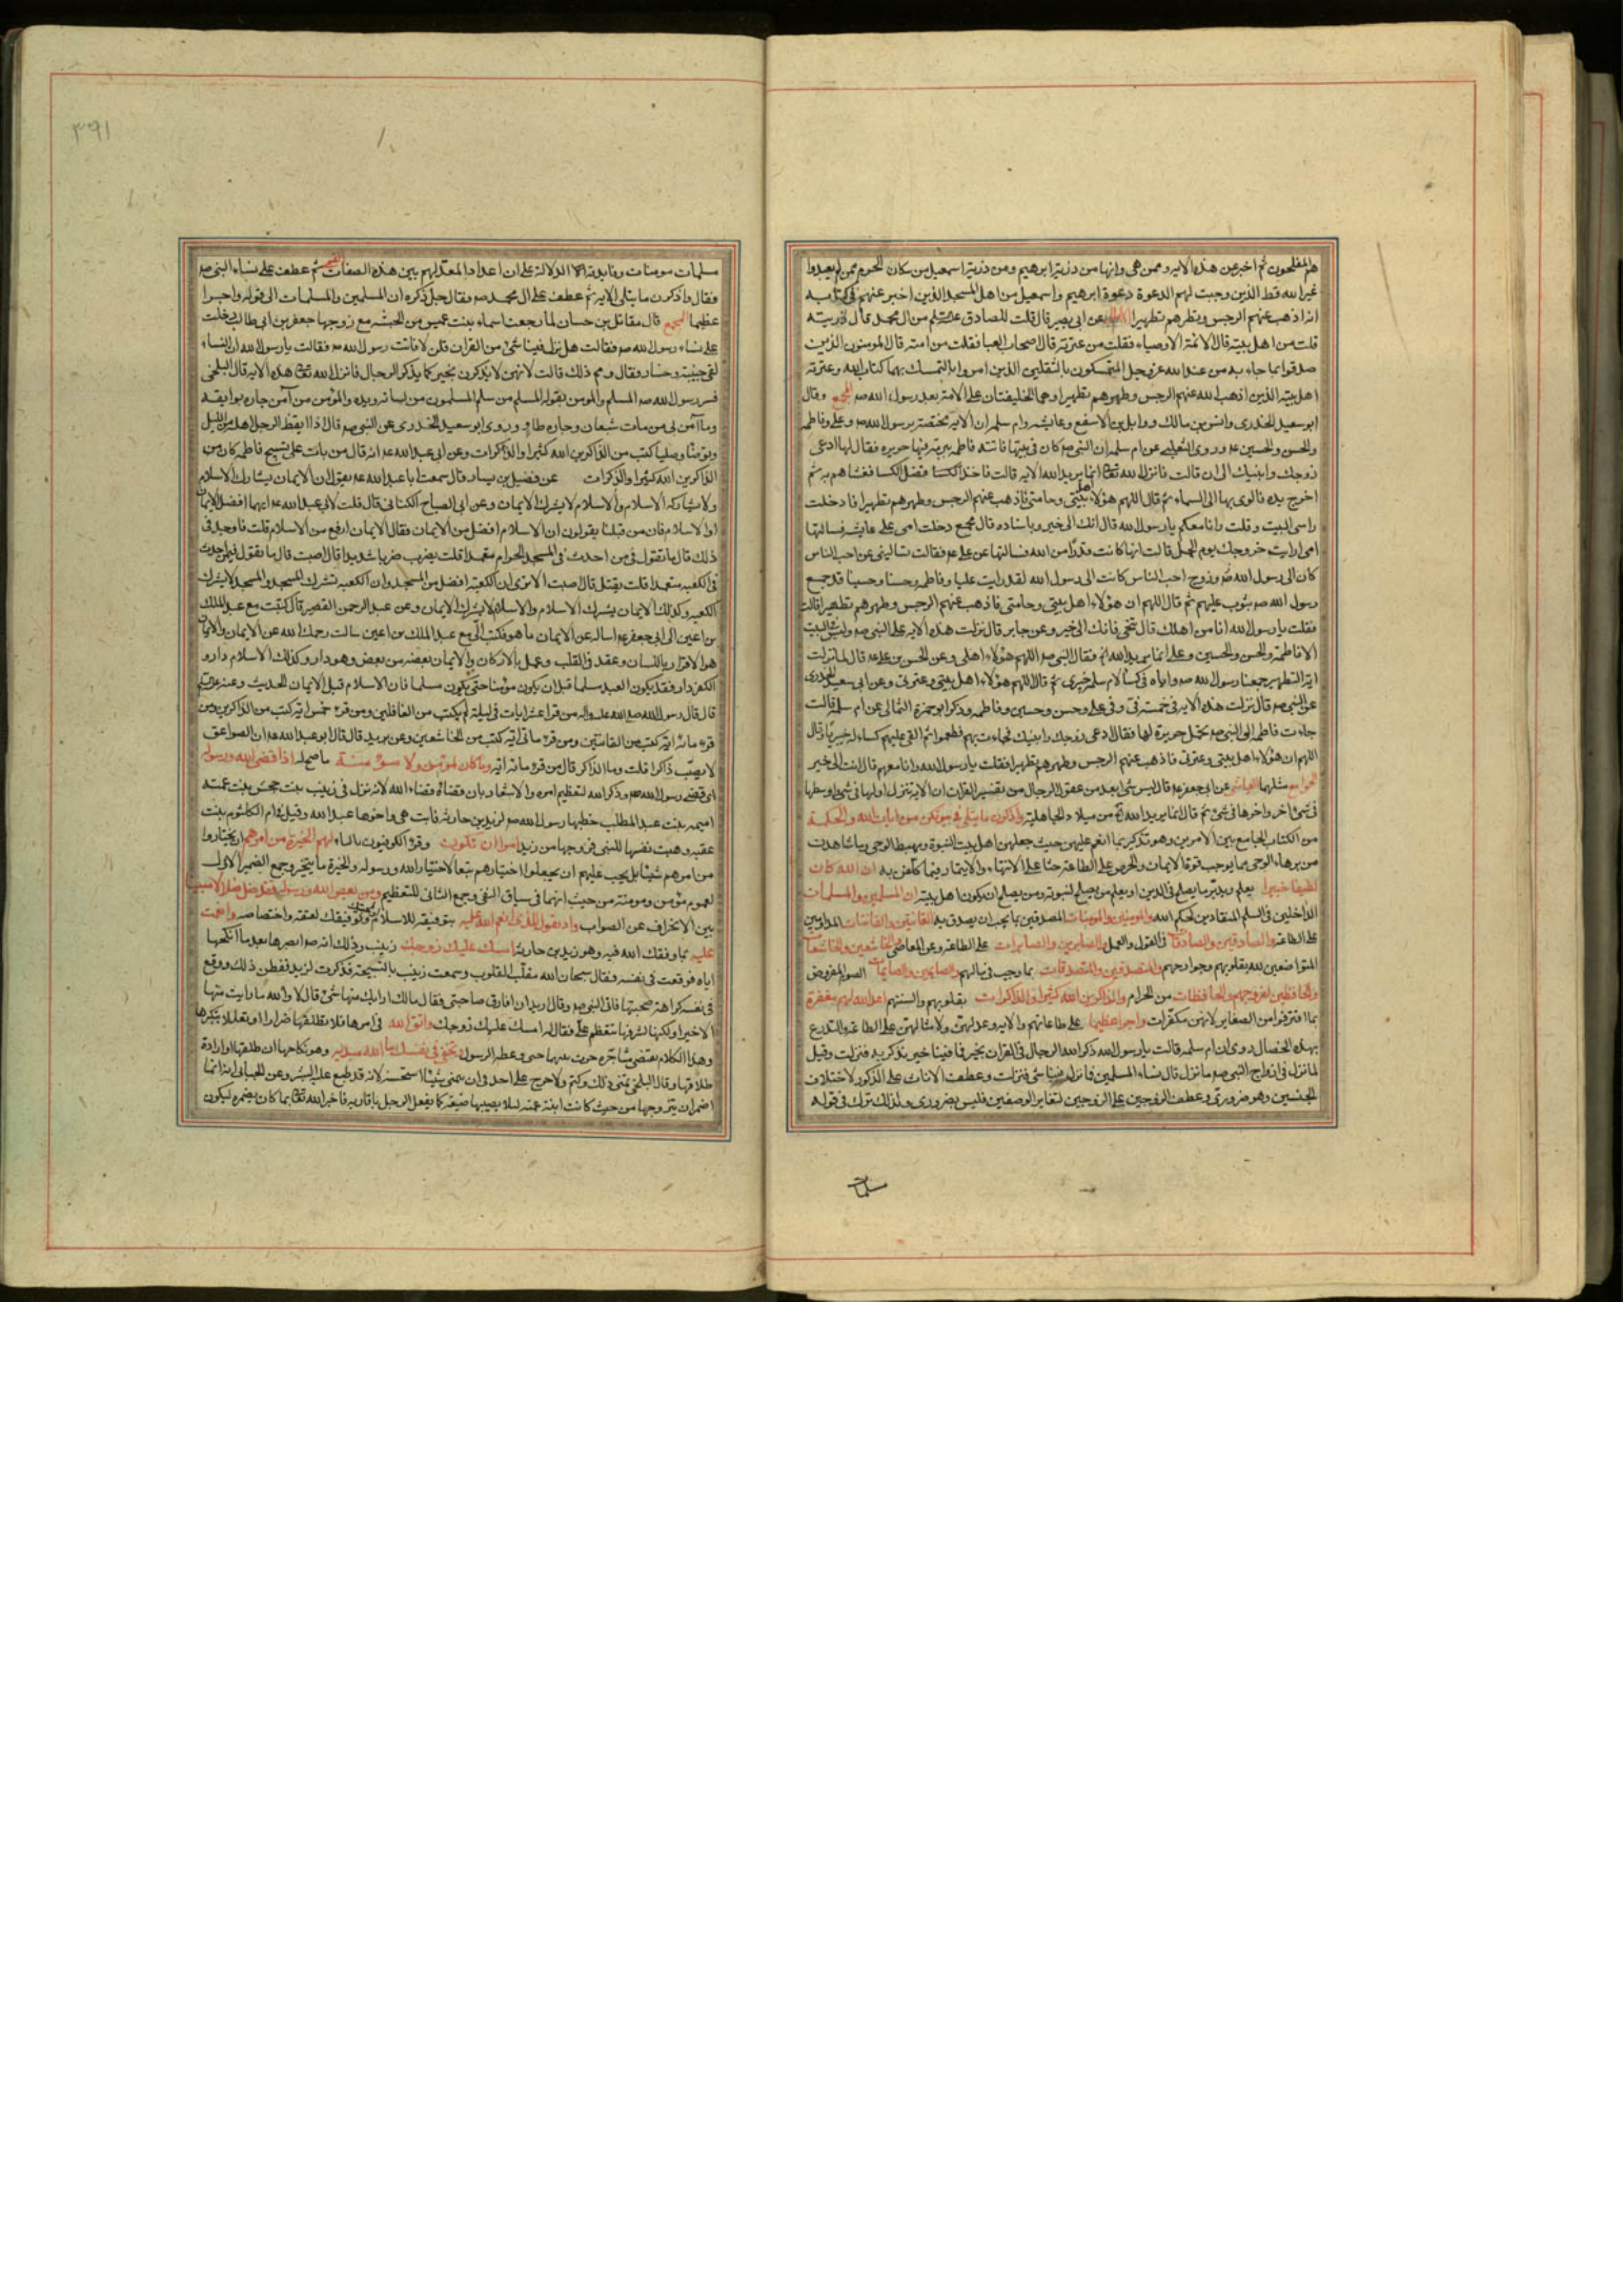 هم المفلحون ثم اخبر عن هذه الايه وممن هى وانها من ذرية ابرهيم ومن ذرية اسمعيل من سكان الحرم ممن لم يعبدوا
غير الله قط الذين وجبت لهم الدعوة دعوة ابرهيم واسمعيل من اهل المسجد الذين اخبر عنهم فى كتابه
انه اذهب عنهم الرجس وتطهرهم تطهيرا عن ابى بصير قال قلت للصادق من ال محمد قال ذريته
قلت من اهل بيته قال الائمة الاوصياء فقلت من عترته قال اصحاب العبا فقلت من امته قال المومنون الذين
صدقوا بما جاء به من عند الله عز وجل المتمسكون بالثقلين الذين امروا بالتمسك بهما كتاب الله وعترته
اهل بيته الذين اذهب الله عنهم الرجس وطهرهم تطهيرا وهما الخليفتان على الامة بعد رسول الله صم المجمع وقال
ابو سعيد الخدرى وانس بن مالك ووابل بن الاسفع وعايشه وام سلمه ان الايه مختصة برسول الله صم وعلى وفاطمه
والحسن والحسين عم وروى الثعلبى عن ام سلمه ان النبى صم كان فى بيتها فاتته فاطمه ببرمة فيها حريره فقال لها ادعى
زوجك وابنيك الى ان قالت فانزل الله تعالى انما يريد الله الايه قالت فاخذ فضل الكسا فغشاهم به ثم
اخرج يده فالوى بها الى السماء ثم قال اللهم هؤلاء اهل بيتى وحامتى فاذهب عنهم الرجس وطهرهم تطهيرا فادخلت
راسى البيت وقلت وانا معكم يا رسول الله قال انك الى خير وباسناده قال مجمع دخلت امى على عايشه فسالتها
امى ارايت خروجك يوم الجمل قالت انها كانت قدرا من الله فسالتها عن على عم فقالت تسالينى عن احب الناس
كان الى رسول الله صم وزوج احب الناس كانت الى رسول الله لقد رايت عليا وفاطمه وحسنا وحسينا قد جمع
رسول الله صم بثوب عليهم ثم قال اللهم ان هؤلاء اهل بيتى وحامتى فاذهب عنهم الرجس وطهرهم تطهيرا قالت
فقلت يا رسول الله انا من اهلك قال تنحى فانك الى خير وعن جابر قال نزلت هذه الايه على النبى صم وليس فى البيت
الا فاطمة والحسن والحسين وعلى انما يريد الله فقال النبى صم اللهم هؤلاء اهلى وعن الحسن بن على عم قال لما نزلت
اية التطهير جمعنا رسول الله صم واياه فى كسا لام سلمه خيبرى ثم قال اللهم هؤلاء اهل بيتى وعترتى وعن ابى سعيد الخدرى
عن النبى صم قال نزلت هذه الايه فى خمسة فى وفى على وحسن وحسين وفاطمه وذكر ابو حمزة الثمالى عن ام سلمه قالت
جاءت فاطمه الى النبى صم تحمل حريرة لها فقال ادعى زوجك وابنيك فجاءت بهم فطعموا ثم القى عليهم كساء له خيبريا وقال
اللهم ان هؤلاء اهل بيتى وعترتى فاذهب عنهم الرجس وطهرهم تطهيرا فقلت يا رسول الله وانا معهم قال انت الى خير
الجوامع مثلها العياشى عن ابى جعفر عم قال ليس شئ ابعد من عقول الرجال من تفسير القران ان الاية تنزل اولها فى شئ واوسطها
فى شئ اخر واخرها فى شئ ثم قال انما يريد الله من ميلاد الجاهلية واذكرن ما يتلى فى بيوتكن من ايات الله والحكمة
من الكتاب الجامع بين الامرين وهو تذكير بما انعم عليهن حيث جعلهن اهل بيت النبوة ومهبط الوحى وما شاهدت
من برهاء الوحى مما يوجب قوة الايمان والحرص على الطاعة حثا على الانتهاء والايتمار فيما كلفن به ان الله كان
لطيفا خبيرا يعلم ويدبر ما يصلح فى الدين او يعلم من يصلح لنبوته ومن يصلح ان يكون اهل بيته ان المسلمين والمسلمات
الداخلين فى السلم المنقادين لحكم الله والمومنين والمومنات المصدقين بما يجب ان يصدق به القانتين والقانتات المداومين
على الطاعة والصادقين والصادقات فى القول والعمل والصابرين والصابرات على الطاعة وعن المعاصى والخاشعين والخاشعات
المتواضعين لله بقلوبهم وجوارحهم والمتصدقين والمتصدقات بما وجب فى مالهم والصايمين والصايمات الصوم المفروض
والحافظين لفروجهم والحافظات من الحرام والذاكرين الله كثيرا والذاكرات بقلوبهم والسنتهم اعد الله لهم مغفرة
بما اقترفوا من الصغاير لانهن مكفرات واجرا عظيما على طاعاتهم والايه وعد لهن ولامثالهن على الطاعة والتدرع
بهذه الخصال روى ان ام سلمه قالت يا رسول الله ذكر الله الرجال فى القران بخير فما فينا خير نذكر به فنزلت وقيل
لما نزل فى ازواج النبى صم ما نزل قال نساء المسلمين فما نزل فينا شئ فنزلت وعطف الاناث على الذكور لاختلاف
الجنسين وهو ضرورى وعطف الزوجين على الزوجين لتغاير الوصفين فليس بضرورى ولذلك ترك فى قوله
مسلمات
٣٩١
مسلمات مومنات وفايدته الدلالة على ان اعداد المعد لهم بين هذه الصفات ثم عطف على نساء النبى صم
فقال واذكرن ما يتلى الايه ثم عطف على ال محمد صم وقال جل ذكره ان المسلمين والمسلمات الى قوله واجرا
عظيما المجمع قال مقاتل بن حسان لما رجعت اسماء بنت عميس من الحبشه مع زوجها جعفر بن ابى طالب دخلت
على نساء رسول الله صم فقالت هل نزل فينا شئ من القران قلن لا فاتت رسول الله صم فقالت يا رسول الله ان النساء
لفى خيبة وخسار فقال ومم ذلك قالت لانهن لا يذكرن بخير كما يذكر الرجال فانزل الله تعالى هذه الايه قال البلخى
فسر رسول الله صم المسلم والمومن بقوله المسلم من سلم المسلمون من لسانه ويده والمؤمن من آمن جاره بوايقه
وما آمن بى من بات شبعان وجاره طاو وروى ابو سعيد الخدرى عن النبى صم قال اذا ايقظ الرجل اهله من الليل
وتوضا وصليا كتب من الذاكرين الله كثيرا والذاكرات وعن ابى عبد الله عم انه قال من بات على تسبيح فاطمه كان من
الذاكرين الله كثيرا والذاكرات عن فضيل بن يسار قال سمعت ابا عبد الله عم يقول ان الايمان يشارك الاسلام
ولا يشاركه الاسلام والاسلام لا يشرك الايمان وعن ابى الصباح الكنانى قال قلت لابى عبد الله عم ايهما افضل الايمان
او الاسلام فان من قبلنا يقولون ان الاسلام افضل من الايمان فقال الايمان ارفع من الاسلام قلت فاوجدنى
ذلك قال ما تقول فى من احدث فى المسجد الحرام متعمدا قلت يضرب ضربا شديدا قال اصبت قال ما تقول فيمن احدث
فى الكعبه متعمدا قلت يقتل قال اصبت الا ترى ان الكعبة افضل من المسجد وان الكعبه تشرك المسجد والمسجد لا يشرك
الكعبه وكذلك الايمان يشرك الاسلام والاسلام لا يشرك الايمان وعن عبد الرحمن القصير قال كتبت مع عبد الملك
بن اعين الى ابى جعفر عم اساله عن الايمان ما هو فكتب الى مع عبد الملك بن اعين سالت رحمك الله عن الايمان والايمان
هو الاقرار باللسان وعقد فى القلب وعمل بالاركان والايمان بعضه من بعض وهو دار وكذلك الاسلام دار و
الكفر دار فقد يكون العبد مسلما قبل ان يكون مؤمنا حتى يكون مسلما فان الاسلام قبل الايمان الحديث وعنه
قال قال رسول الله صلى الله عليه واله من قرا عشر ايات فى ليلة لم يكتب من الغافلين ومن قرء خمس اية كتب من الذاكرين ومن
قرء مائة اية كتب من القانتين ومن قرء ماتى اية كتب من الخاشعين وعن بريد قال قال ابو عبد الله عم ان الصواعق
لا تصيب ذاكرا قلت وما الذاكر قال من قرء مائة اية وما كان لمومن ولا مؤمنة ما صح له اذا قضى الله ورسوله
اى قضى رسول الله صم وذكر الله لتعظيم امره والاشعار بان قضاؤه قضاء الله لانه نزل فى زينب بنت جحش بنت عمته
اميمه بنت عبد المطلب خطبها رسول الله صم لزيد بن حارثه فابت هى واخوها عبد الله وقيل فى ام الكلثوم بنت
عقبه وهبت نفسها للنبى فزوجها من زيد امرا ان تكون وقرء الكوفيون بالياء لهم الخيرة من امرهم ان يختاروا
من امرهم شيئا بل يجب عليهم ان يجعلوا اختيارهم تبعا لاختيار الله ورسوله والخيرة ما يتخير وجمع الضمير الاول
لعموم مؤمن ومومنة من حيث انهما فى سياق النفى وجمع الثانى للتعظيم ومن يعص الله ورسوله فقد ضل ضلالا مبينا
بين الانحراف عن الصواب واذ تقول للذى انعم الله عليه بتوفيقه للاسلام وتوفيقك لعتقه واختصاصه وانعمت
عليه بما وفقك الله فيه وهو زيد بن حارثة امسك عليك زوجك زينب وذلك انه صم ابصرها بعد ما انكحها
اياه فوقعت فى نفسه فقال سبحان الله مقلب القلوب وسمعت زينب بالتسبيحة فذكرت لزيد ففطن ذلك ووقع
فى نفسه كراهة صحبتها فاتى النبى صم وقال اريد ان افارق صاحبتى فقال مالك ارابك منها شئ قال لا والله ما رايت منها
الا خيرا ولكنها لشرفها تتعظم على فقال له امسك عليك زوجك واتق الله فى امرها فلا تطلقها ضرارا او تعللا بتكبرها
وهذا الكلام يقتضى مشاجرة جرت بينهما حتى وعظه الرسول وتخفى فى نفسك ما الله مبديه وهو نكاحها ان طلقها او ارادة
طلاقها وقال البلخى تمنى ذلك وكتم ولا حرج على احد فى ان يتمنى شيئا استحسنه لانه قد طبع عليه البشر وعن الجبائى انه انما
اضمر ان يتزوجها من حيث كانت ابنة عمته ليلا يصيبها ضيعة كما يفعل الرجل باقاربه فاخبر الله تعالى بما كان يضمره ليكون